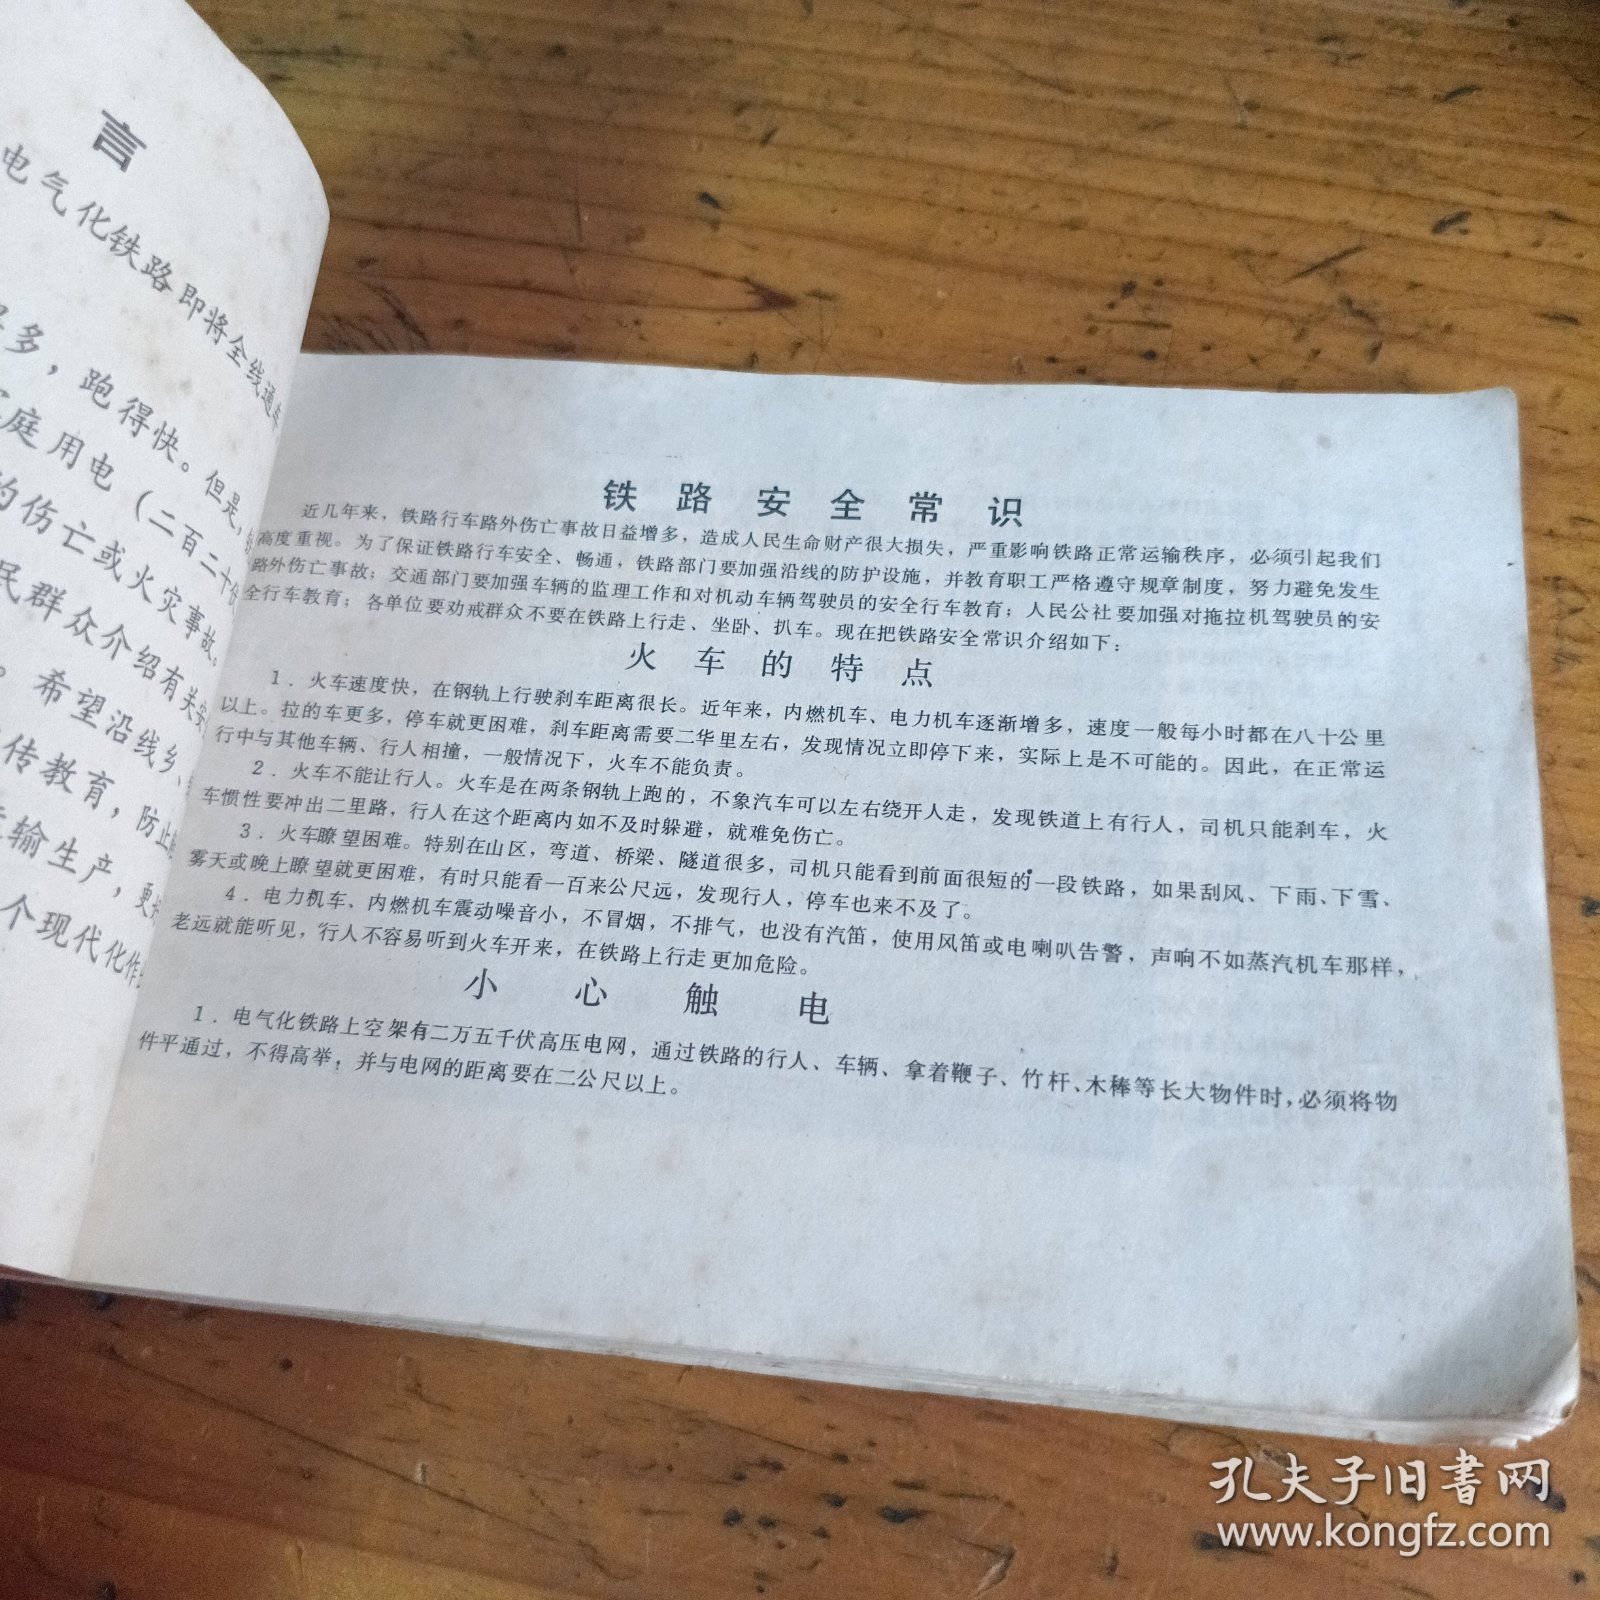 言
电气化铁路即将全线通车
多，跑得快。但是，
庭用电（二百二十伏
的伤亡或火灾事故，
民群众介绍有关安
。希望沿线乡、
传教育，防止
输生产，更
个现代化作
铁路安全常识
近几年来，铁路行车路外伤亡事故日益增多，造成人民生命财产很大损失，严重影响铁路正常运输秩序，必须引起我们
高度重视。为了保证铁路行车安全、畅通，铁路部门要加强沿线的防护设施，并教育职工严格遵守规章制度，努力避免发生
路外伤亡事故；交通部门要加强车辆的监理工作和对机动车辆驾驶员的安全行车教育；人民公社要加强对拖拉机驾驶员的安
全行车教育；各单位要劝戒群众不要在铁路上行走、坐卧、扒车。现在把铁路安全常识介绍如下：
火车的特点
1．火车速度快，在钢轨上行驶刹车距离很长。近年来，内燃机车、电力机车逐渐增多，速度一般每小时都在八十公里
以上。拉的车更多，停车就更困难，刹车距离需要二华里左右，发现情况立即停下来，实际上是不可能的。因此，在正常运
行中与其他车辆、行人相撞，一般情况下，火车不能负责。
2．火车不能让行人。火车是在两条钢轨上跑的，不象汽车可以左右绕开人走，发现铁道上有行人，司机只能刹车，火
车惯性要冲出二里路，行人在这个距离内如不及时躲避，就难免伤亡。
3．火车瞭望困难。特别在山区，弯道、桥梁、隧道很多，司机只能看到前面很短的一段铁路，如果刮风、下雨、下雪、
雾天或晚上瞭望就更困难，有时只能看一百来公尺远，发现行人，停车也来不及了。
4．电力机车、内燃机车震动噪音小，不冒烟，不排气，也没有汽笛，使用风笛或电喇叭告警，声响不如蒸汽机车那样，
老远就能听见，行人不容易听到火车开来，在铁路上行走更加危险。
小心触电
1．电气化铁路上空架有二万五千伏高压电网，通过铁路的行人、车辆、拿着鞭子、竹杆、木棒等长大物件时，必须将物
件平通过，不得高举，并与电网的距离要在二公尺以上。
孔夫子旧书网
www.kongfz.com